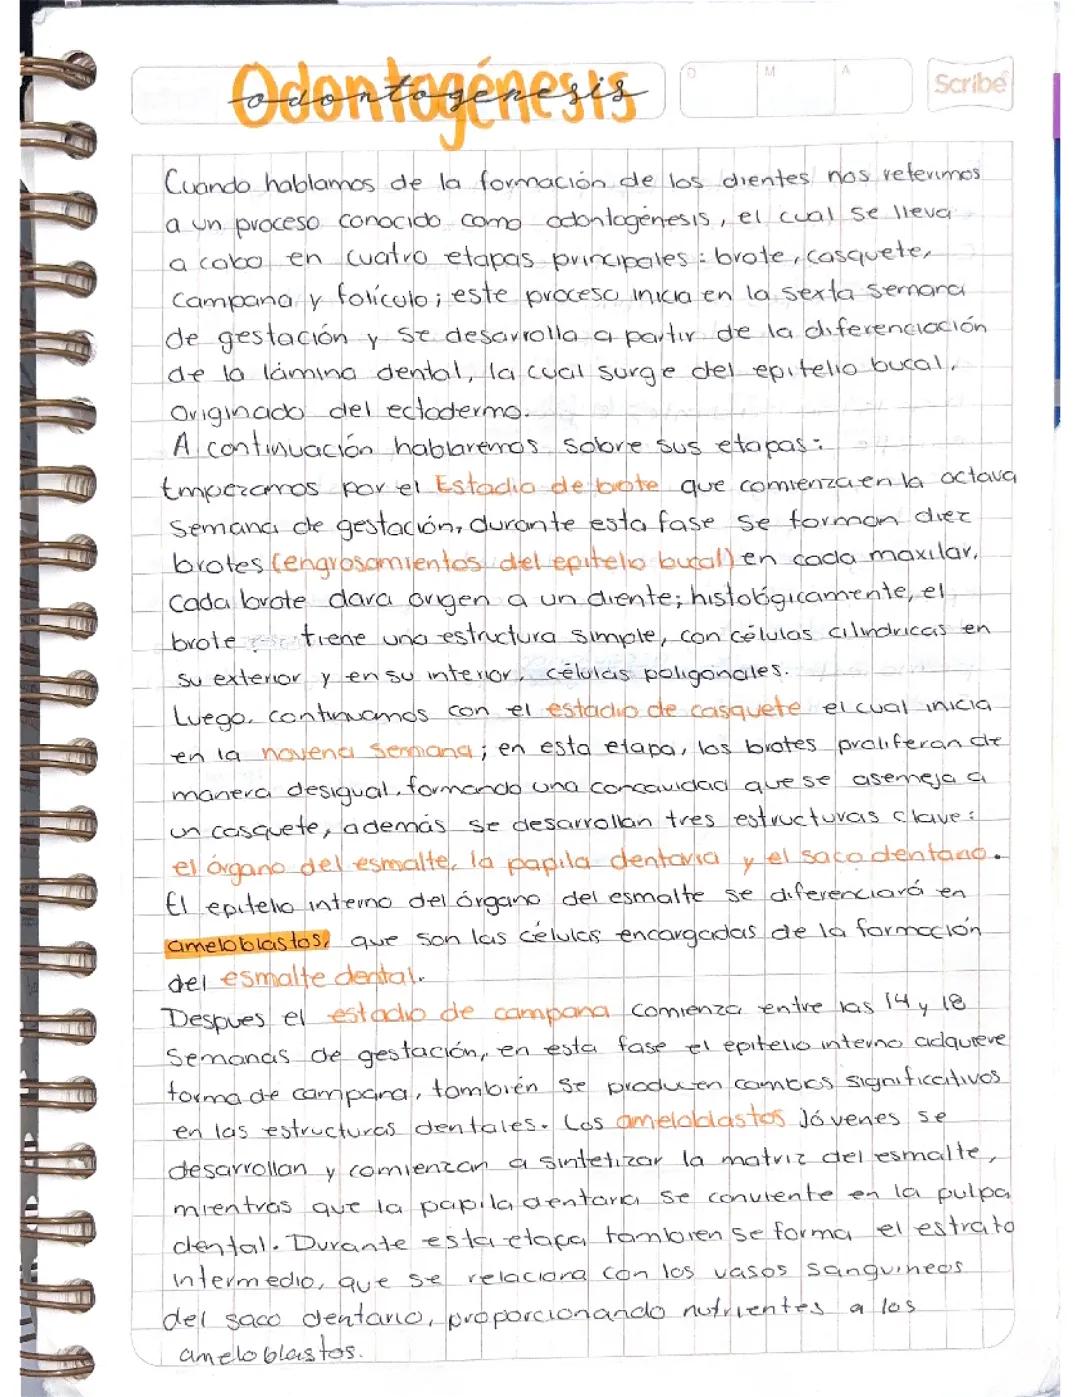 Odontogénesis
odontogenesis
D M A
Scribe
Cuando hablamos de la formación de los dientes nos referimos
a un proceso conocido como odontogénesis, el cual se lleva
a cabo en cuatro etapas principales: brote, casquete,
campana y folículo; este proceso inicia en la sexta semana
de gestación y se desarrolla a partir de la diferenciación
de la lámina dental, la cual surge del epitelio bucal,
Originado del ectodermo.
A continuación hablaremos sobre sus etapas:
Empezamos por el Estadio de brote que comienza en la octava
semana de gestación, durante esta fase se forman diez
brotes (engrosamientos del epitelio bucal) en cada maxilar.
Cada brote dara origen a un diente; histológicamente, el
brote tiene una estructura simple, con células cilindricas en
su exterior y en su interior, células poligonales.
Luego, continuamos con el estadio de casquete el cual inicia
en la novena semana; en esta etapa, los brotes proliferan de
manera desigual, formando una concavidad que se asemeja a
un casquete, además se desarrollan tres estructuras clave:
el órgano del esmalte, la papila dentaria y el saco dentario.
El epitelio interno del órgano del esmalte se diferenciará en
ameloblastos, que son las células encargadas de la formación
del esmalte dental.
Despues el estadio de campana comienza entre las 14 y 18
semanas de gestación, en esta fase el epitelio interno adquiere
forma de campana, también se producen cambios significativos
en las estructuras dentales. Los ameloblastos Jóvenes se
desarrollan y comienzan a sintetizar la matriz del esmalte,
mientras que la papila dentaria se convierte en la pulpa
dental. Durante esta etapa tambien se forma el estrato
intermedio, que se relaciona con los vasos sanguineos
del saco dentario, proporcionando nutrientes a los
ameloblastos.